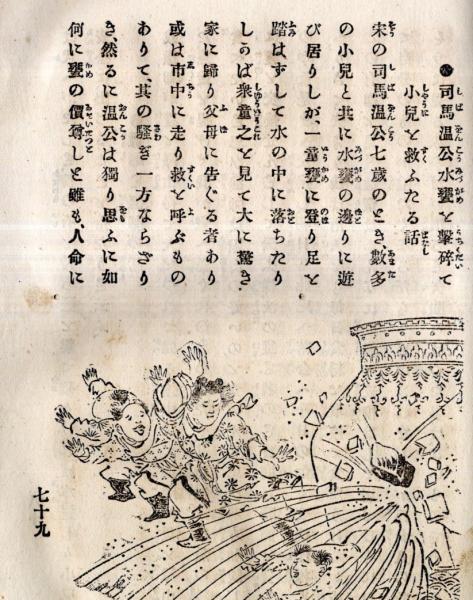 ●司馬温公水甕を撃碎て
小兒を救ふたる話
宋の司馬温公七歳のとき、數多
の小兒と共に水甕の邊りに遊
び居りしが、一童甕に登り足を
踏はずして水の中に落ちたり
しかば衆童之を見て大に驚き
家に歸り父母に告ぐる者あり
或は市中に走り救を呼ぶもの
ありて、其の騒ぎ一方ならざり
き、然るに温公は獨り思ふに如
何に甕の價尊しと雖も、人命に
七十九